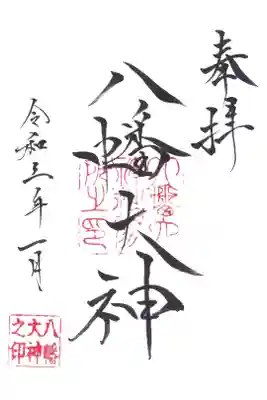 奉拝
八幡大神
令和三年一月
八幡
大神
之印